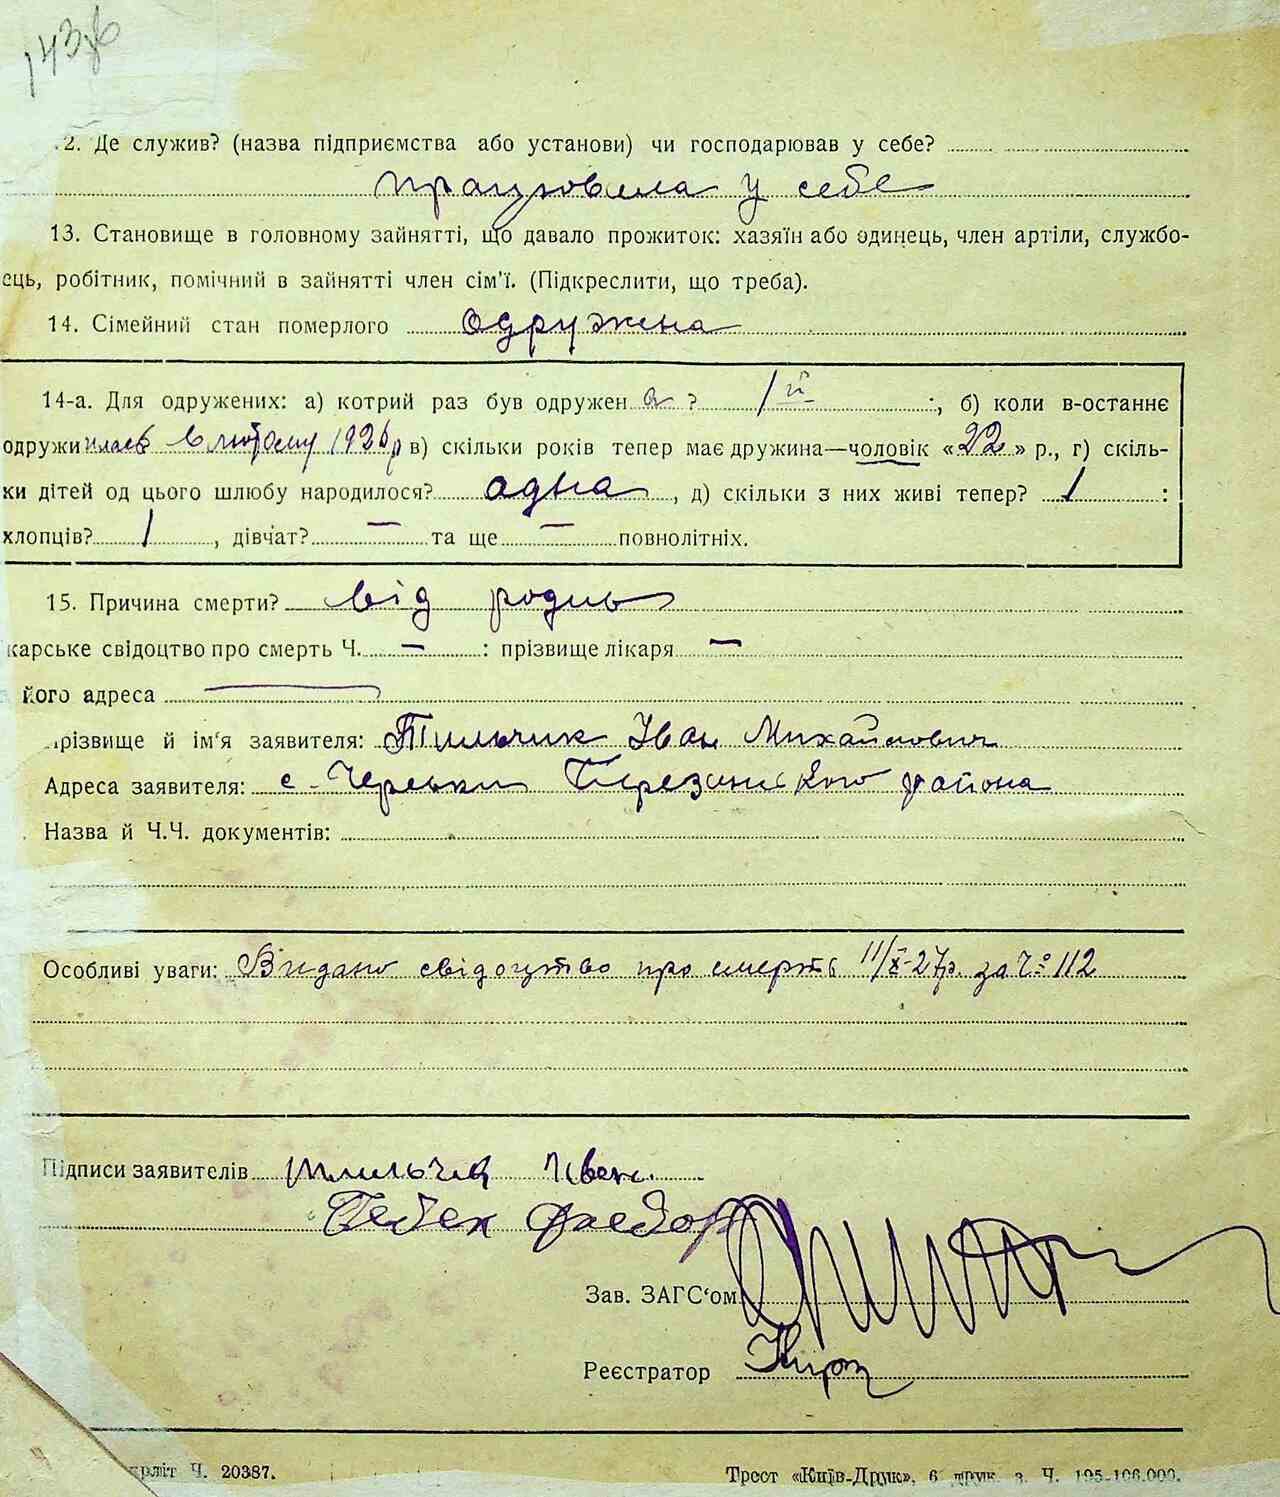 143
.2. Де служив? (назва підприємства або установи) чи господарював у себе?
працювала у себе
13. Становище в головному зайнятті, що давало прожиток: хазяїн або одинець, член артіли, службо-
ець, робітник, помічний в зайнятті член сім'ї. (Підкреслити, що треба).
14. Сімейний стан померлого одружена
14-а. Для одружених: а) котрий раз був одружен а ? 1й :, б) коли в-останнє
одружилась в лютому 1926 р в) скільки років тепер має дружина—чоловік «22» р., г) скіль-
ки дітей од цього шлюбу народилося? одна, д) скільки з них живі тепер? 1 :
хлопців? 1, дівчат? — та ще — повнолітніх.
15. Причина смерти? від родив
карське свідоцтво про смерть Ч. — : прізвище лікаря —
його адреса —
прізвище й ім'я заявителя: Тильчик Іван Михайлович
Адреса заявителя: с. Черськи Березанського района
Назва й Ч.Ч. документів:
Особливі уваги: Видано свідоцтво про смерть 11/X-27р. за Ч° 112
Підписи заявителів Іван
Федор
Зав. ЗАГС'ом
Реєстратор
рліт Ч. 20387.
Трест «Київ-Друк», 6 друк. з. Ч. 195-106.000.